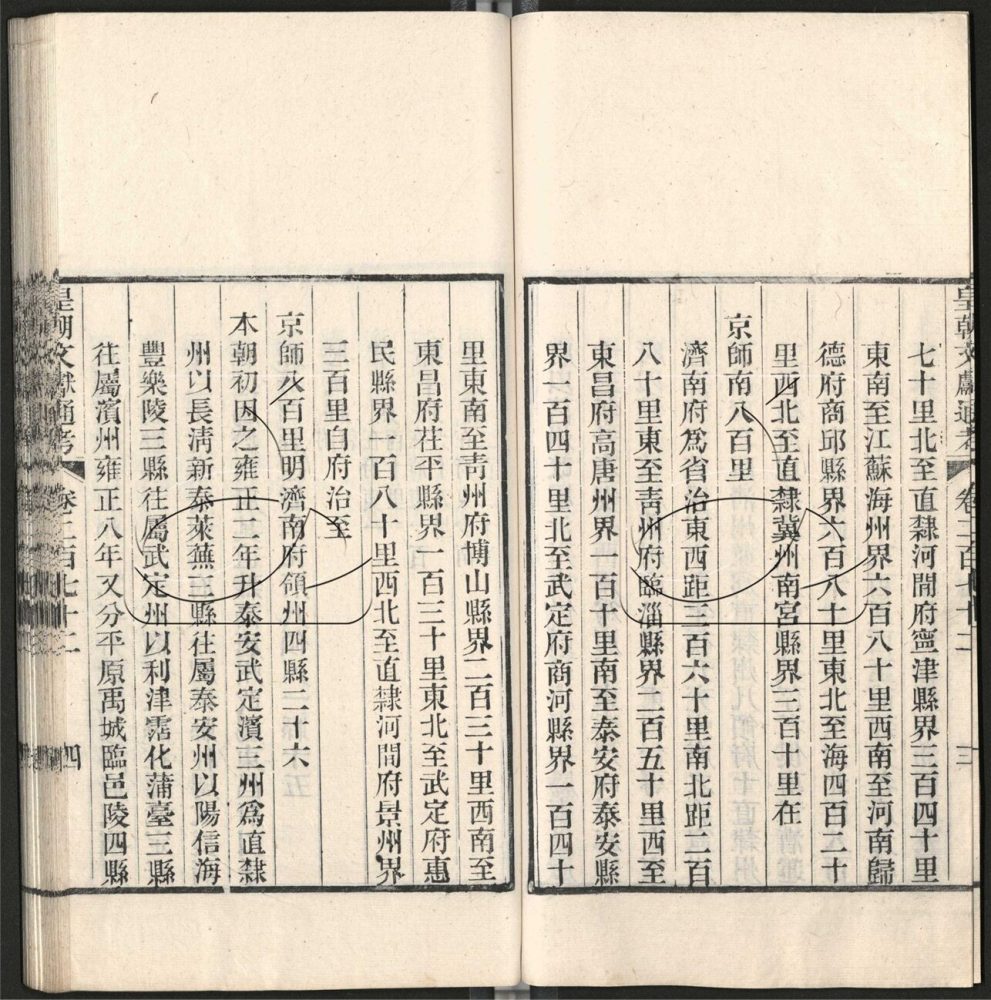 皇朝文獻通考 卷二百七十二 三
七十里北至直隸河間府寧津縣界三百四十里
東南至江蘇海州界六百八十里西南至河南歸
德府商邱縣界六百八十里東北至海四百二十
里西北至直隸冀州南宮縣界三百十里在
京師南八百里
濟南府爲省治東西距三百六十里南北距二百
八十里東至青州府臨淄縣界二百五十里西至
東昌府高唐州界一百十里南至泰安府泰安縣
界一百四十里北至武定府商河縣界一百四十
里東南至青州府博山縣界二百三十里西南至
東昌府茌平縣界一百三十里東北至武定府惠
民縣界一百八十里西北至直隸河間府景州界
三百里自府治至
京師八百里明濟南府領州四縣二十六
本朝初因之雍正二年升泰安武定濱三州爲直隸
州以長清新泰萊蕪三縣往屬泰安州以陽信海
豐樂陵三縣往屬武定州以利津霑化蒲臺三縣
往屬濱州雍正八年又分平原禹城臨邑陵四縣
皇朝文獻通考 卷二百七十二 四